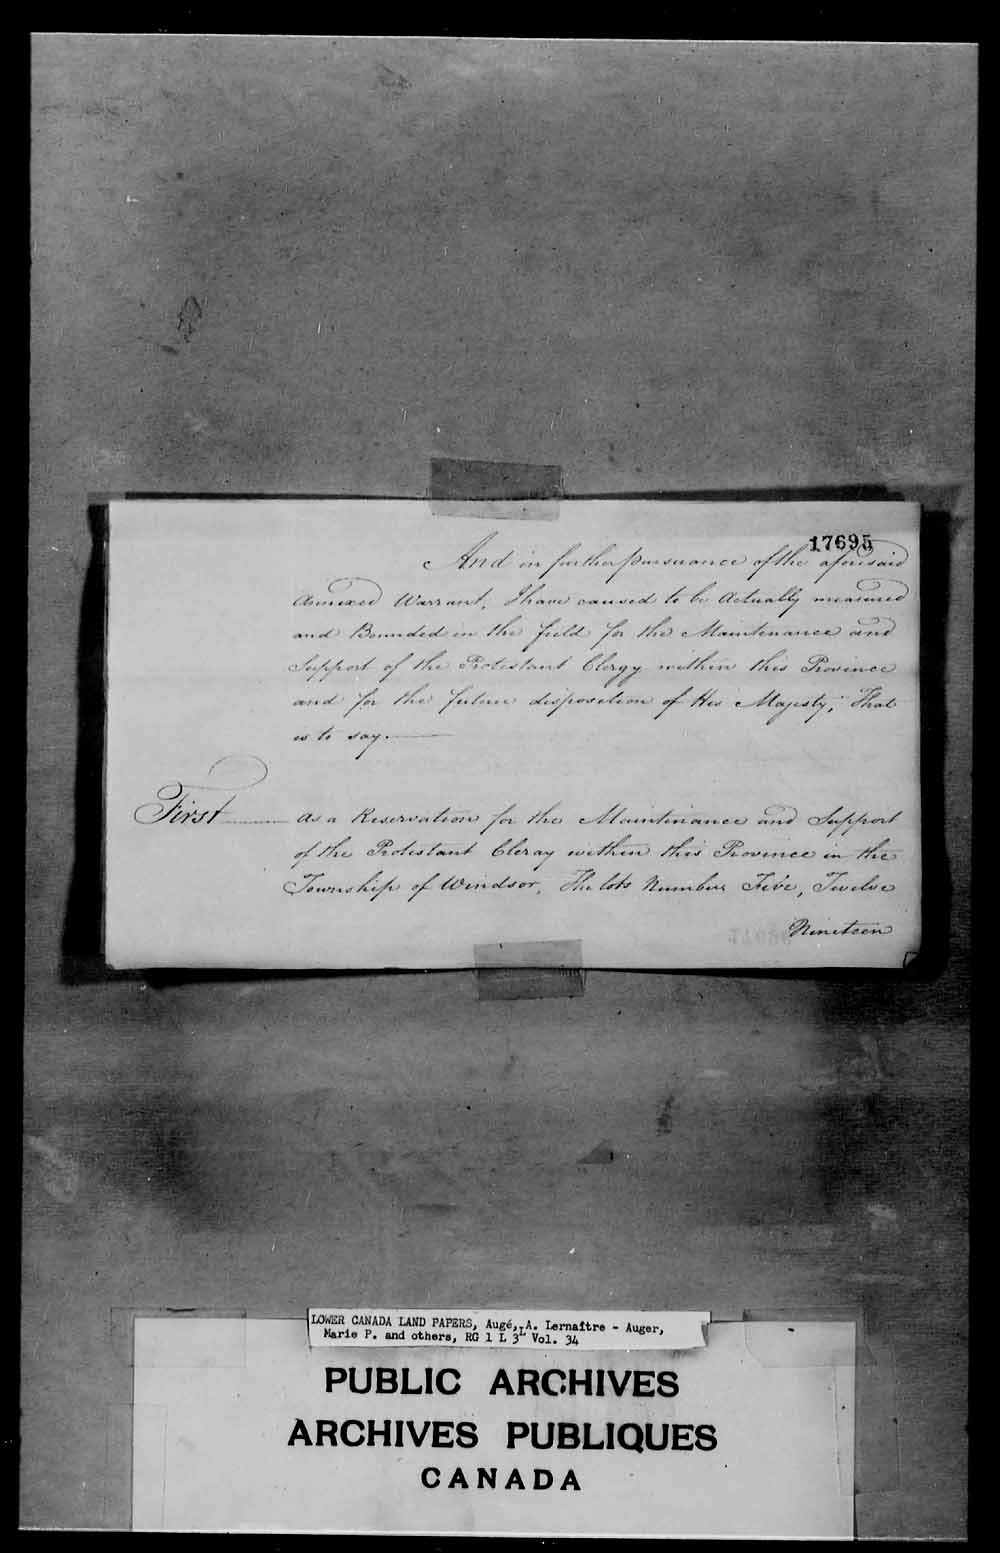 17695
And in further pursuance of the aforesaid
Annexed Warrant, I have caused to be Actually measured
and Bounded in the field for the Maintenance and
Support of the Protestant Clergy within this Province
and for the future disposition of His Majesty; That
is to say.
First As a Reservation for the Maintenance and Support
of the Protestant Clergy within this Province in the
Township of Windsor, The lots Number Five, Twelve
Nineteen
LOWER CANADA LAND PAPERS, Augé, A. Lernaître - Auger,
Marie P. and others, RG 1 L 3L Vol. 34
PUBLIC ARCHIVES
ARCHIVES PUBLIQUES
CANADA